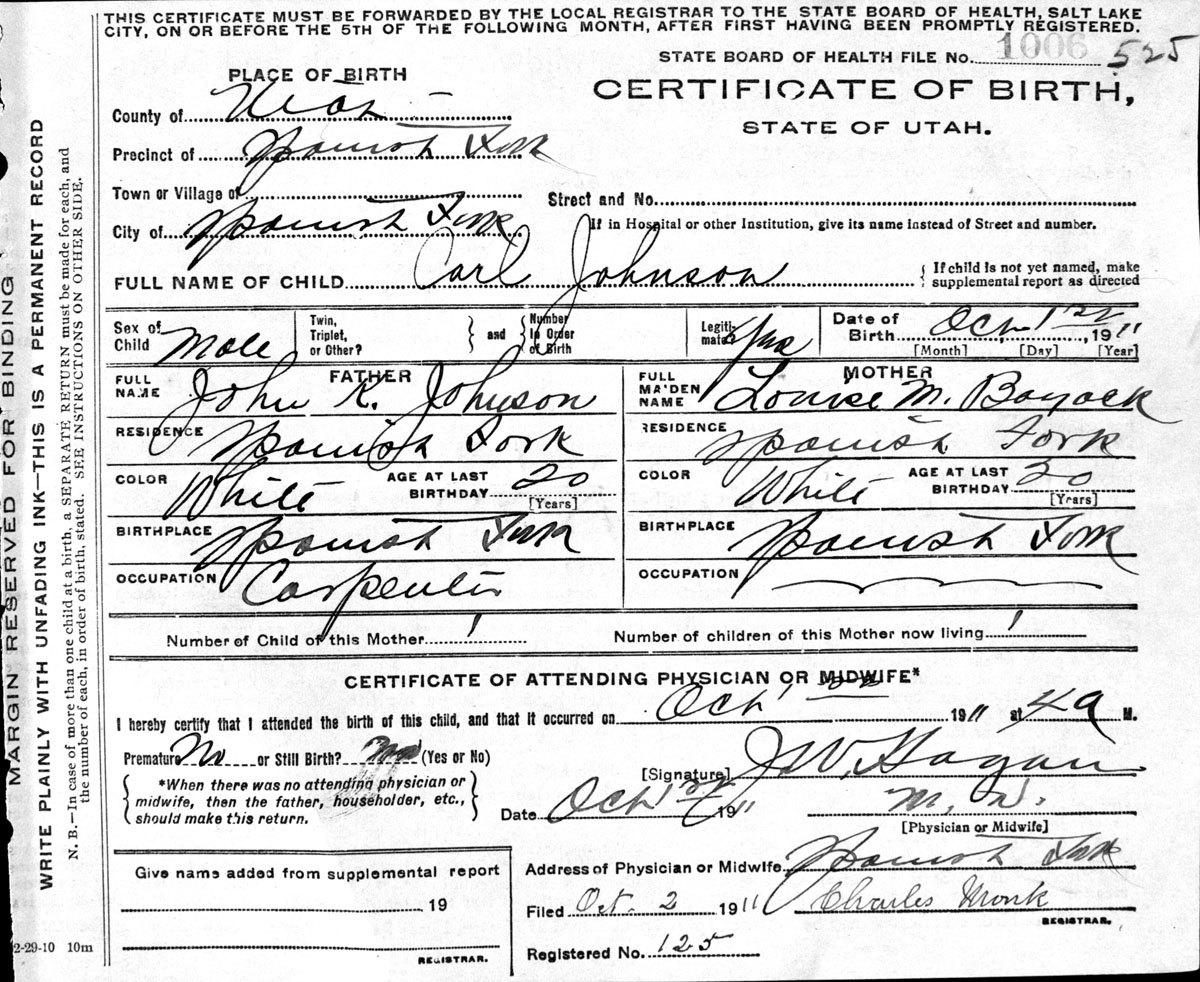 THIS CERTIFICATE MUST BE FORWARDED BY THE LOCAL REGISTRAR TO THE STATE BOARD OF HEALTH, SALT LAKE
CITY, ON OR BEFORE THE 5TH OF THE FOLLOWING MONTH, AFTER FIRST HAVING BEEN PROMPTLY REGISTERED.
STATE BOARD OF HEALTH FILE No. 1006 525
PLACE OF BIRTH
CERTIFICATE OF BIRTH,
STATE OF UTAH.
County of Utah
Precinct of Spanish Fork
Town or Village of
Street and No.
City of Spanish Fork
If in Hospital or other Institution, give its name instead of Street and number.
FULL NAME OF CHILD Carl Johnson
{ If child is not yet named, make
supplemental report as directed
Sex of Child Male
Twin, Triplet, or Other?
} and {
Number in Order of Birth
Legitimate? Yes
Date of Birth Oct 1st, 1911
[Month] [Day] [Year]
FATHER
FULL NAME John K. Johnson
MOTHER
FULL MAIDEN NAME Louise M. Boyack
RESIDENCE Spanish Fork
RESIDENCE Spanish Fork
COLOR White AGE AT LAST BIRTHDAY 20 [Years]
COLOR White AGE AT LAST BIRTHDAY 20 [Years]
BIRTHPLACE Spanish Fork
BIRTHPLACE Spanish Fork
OCCUPATION Carpenter
OCCUPATION
Number of Child of this Mother 1
Number of children of this Mother now living 1
CERTIFICATE OF ATTENDING PHYSICIAN OR MIDWIFE*
I hereby certify that I attended the birth of this child, and that it occurred on Oct 1st 1911 at 4 a M.
Premature No or Still Birth? No (Yes or No)
*When there was no attending physician or
midwife, then the father, householder, etc.,
should make this return.
[Signature] J. W. Hagan
Date Oct 1911
M. D.
[Physician or Midwife]
Give name added from supplemental report
19
REGISTRAR.
Address of Physician or Midwife Spanish Fork
Filed Oct. 2 1911
Charles Monk
REGISTRAR.
Registered No. 125
2-29-10 10m
MARGIN RESERVED FOR BINDING
WRITE PLAINLY WITH UNFADING INK—THIS IS A PERMANENT RECORD
N. B.—In case of more than one child at a birth, a SEPARATE RETURN must be made for each, and
the number of each, in order of birth, stated. SEE INSTRUCTIONS ON OTHER SIDE.